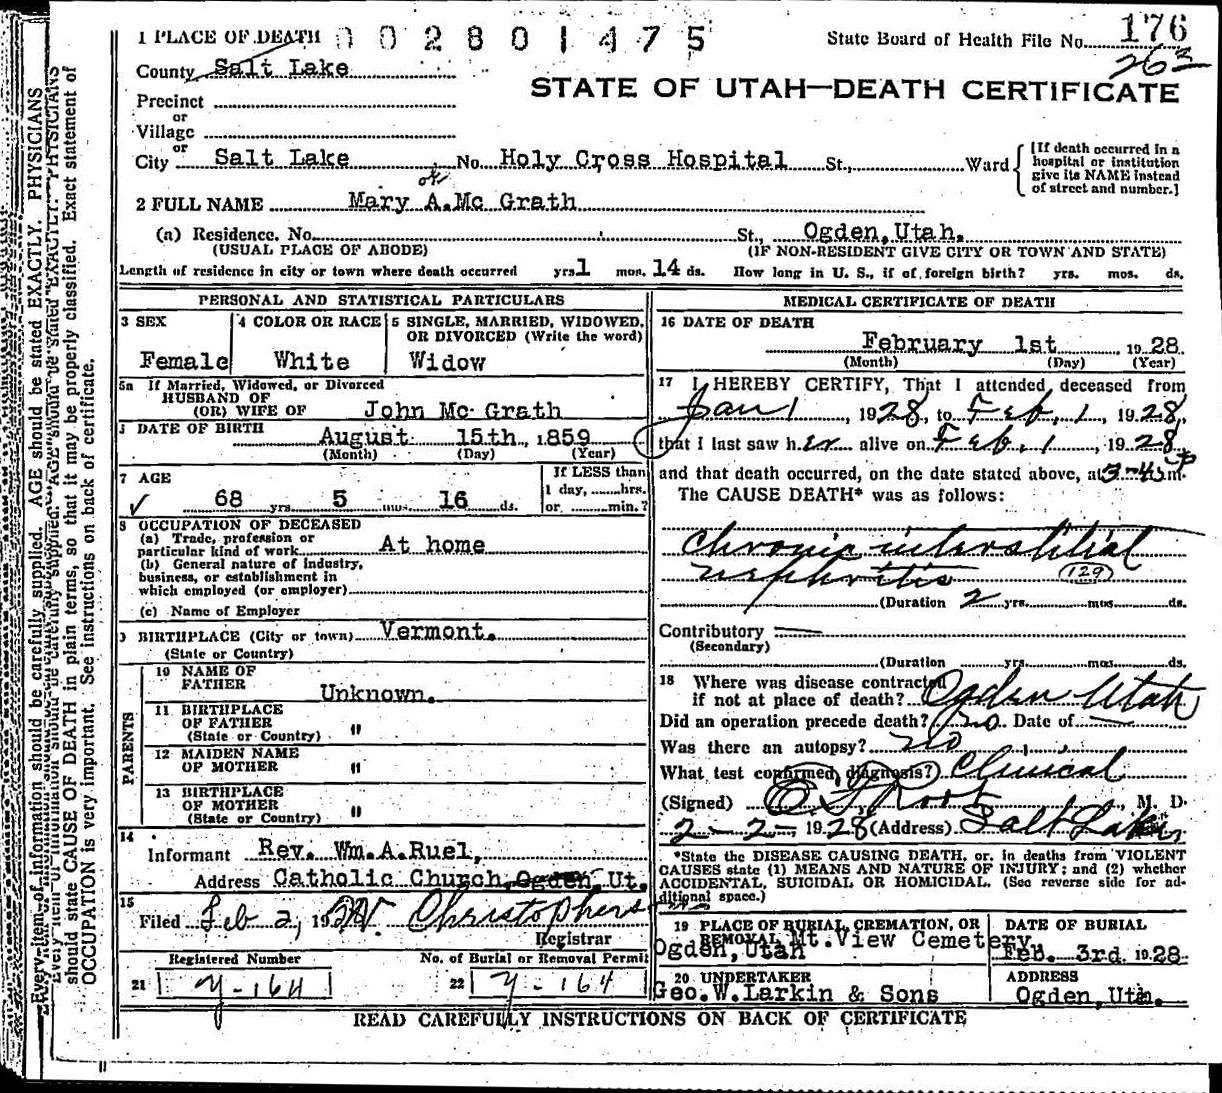 1 PLACE OF DEATH 002801475
State Board of Health File No. 176
263
County Salt Lake
STATE OF UTAH—DEATH CERTIFICATE
Precinct
or
Village
or
City Salt Lake No. Holy Cross Hospital St., Ward
[If death occurred in a hospital or institution give its NAME instead of street and number.]
ok
2 FULL NAME Mary A. Mc Grath
(a) Residence. No. St., Ogden, Utah.
(USUAL PLACE OF ABODE) (IF NON-RESIDENT GIVE CITY OR TOWN AND STATE)
Length of residence in city or town where death occurred yrs. 1 mos. 14 ds. How long in U. S., if of foreign birth? yrs. mos. ds.
PERSONAL AND STATISTICAL PARTICULARS
3 SEX
Female
4 COLOR OR RACE
White
5 SINGLE, MARRIED, WIDOWED, OR DIVORCED (Write the word)
Widow
5a If Married, Widowed, or Divorced
HUSBAND OF
(OR) WIFE OF John Mc Grath
DATE OF BIRTH August 15th., 1859
(Month) (Day) (Year)
7 AGE
68 yrs. 5 mos. 16 ds.
If LESS than
1 day, hrs.
or min.?
8 OCCUPATION OF DECEASED
(a) Trade, profession or
particular kind of work At home
(b) General nature of industry,
business, or establishment in
which employed (or employer)
(c) Name of Employer
9 BIRTHPLACE (City or town) Vermont.
(State or Country)
PARENTS
10 NAME OF
FATHER Unknown.
11 BIRTHPLACE
OF FATHER
(State or Country) "
12 MAIDEN NAME
OF MOTHER "
13 BIRTHPLACE
OF MOTHER
(State or Country) "
14
Informant Rev. Wm. A. Ruel,
Address Catholic Church, Ogden, Ut.
15
Filed Feb 2, 1928 W. Christophers
Registrar
Registered Number
21 Y-164
No. of Burial or Removal Permit
22 Y-164
MEDICAL CERTIFICATE OF DEATH
16 DATE OF DEATH
February 1st 1928
(Month) (Day) (Year)
17 I HEREBY CERTIFY, That I attended deceased from
Jan 1, 1928, to Feb, 1, 1928,
that I last saw her alive on Feb, 1, 1928,
and that death occurred, on the date stated above, at m.
The CAUSE DEATH* was as follows:
Chronic interstitial
nephritis 129
(Duration 2 yrs. mos. ds.
Contributory
(Secondary)
(Duration yrs. mos. ds.
18 Where was disease contracted
if not at place of death? Ogden Utah
Did an operation precede death? no. Date of
Was there an autopsy? no
What test confirmed diagnosis? Clinical
(Signed) Root, M. D.
2-2-, 1928 (Address) Salt Lake
*State the DISEASE CAUSING DEATH, or, in deaths from VIOLENT
CAUSES state (1) MEANS AND NATURE OF INJURY; and (2) whether
ACCIDENTAL, SUICIDAL OR HOMICIDAL. (See reverse side for ad-
ditional space.)
19 PLACE OF BURIAL, CREMATION, OR
REMOVAL Mt. View Cemetery
Ogden, Utah
DATE OF BURIAL
Feb. 3rd. 1928
20 UNDERTAKER
Geo. W. Larkin & Sons
ADDRESS
Ogden, Utah.
READ CAREFULLY INSTRUCTIONS ON BACK OF CERTIFICATE
Every item of information should be carefully supplied. AGE should be stated EXACTLY. PHYSICIANS
should state CAUSE OF DEATH in plain terms, so that it may be properly classified. Exact statement of
OCCUPATION is very important. See instructions on back of certificate.